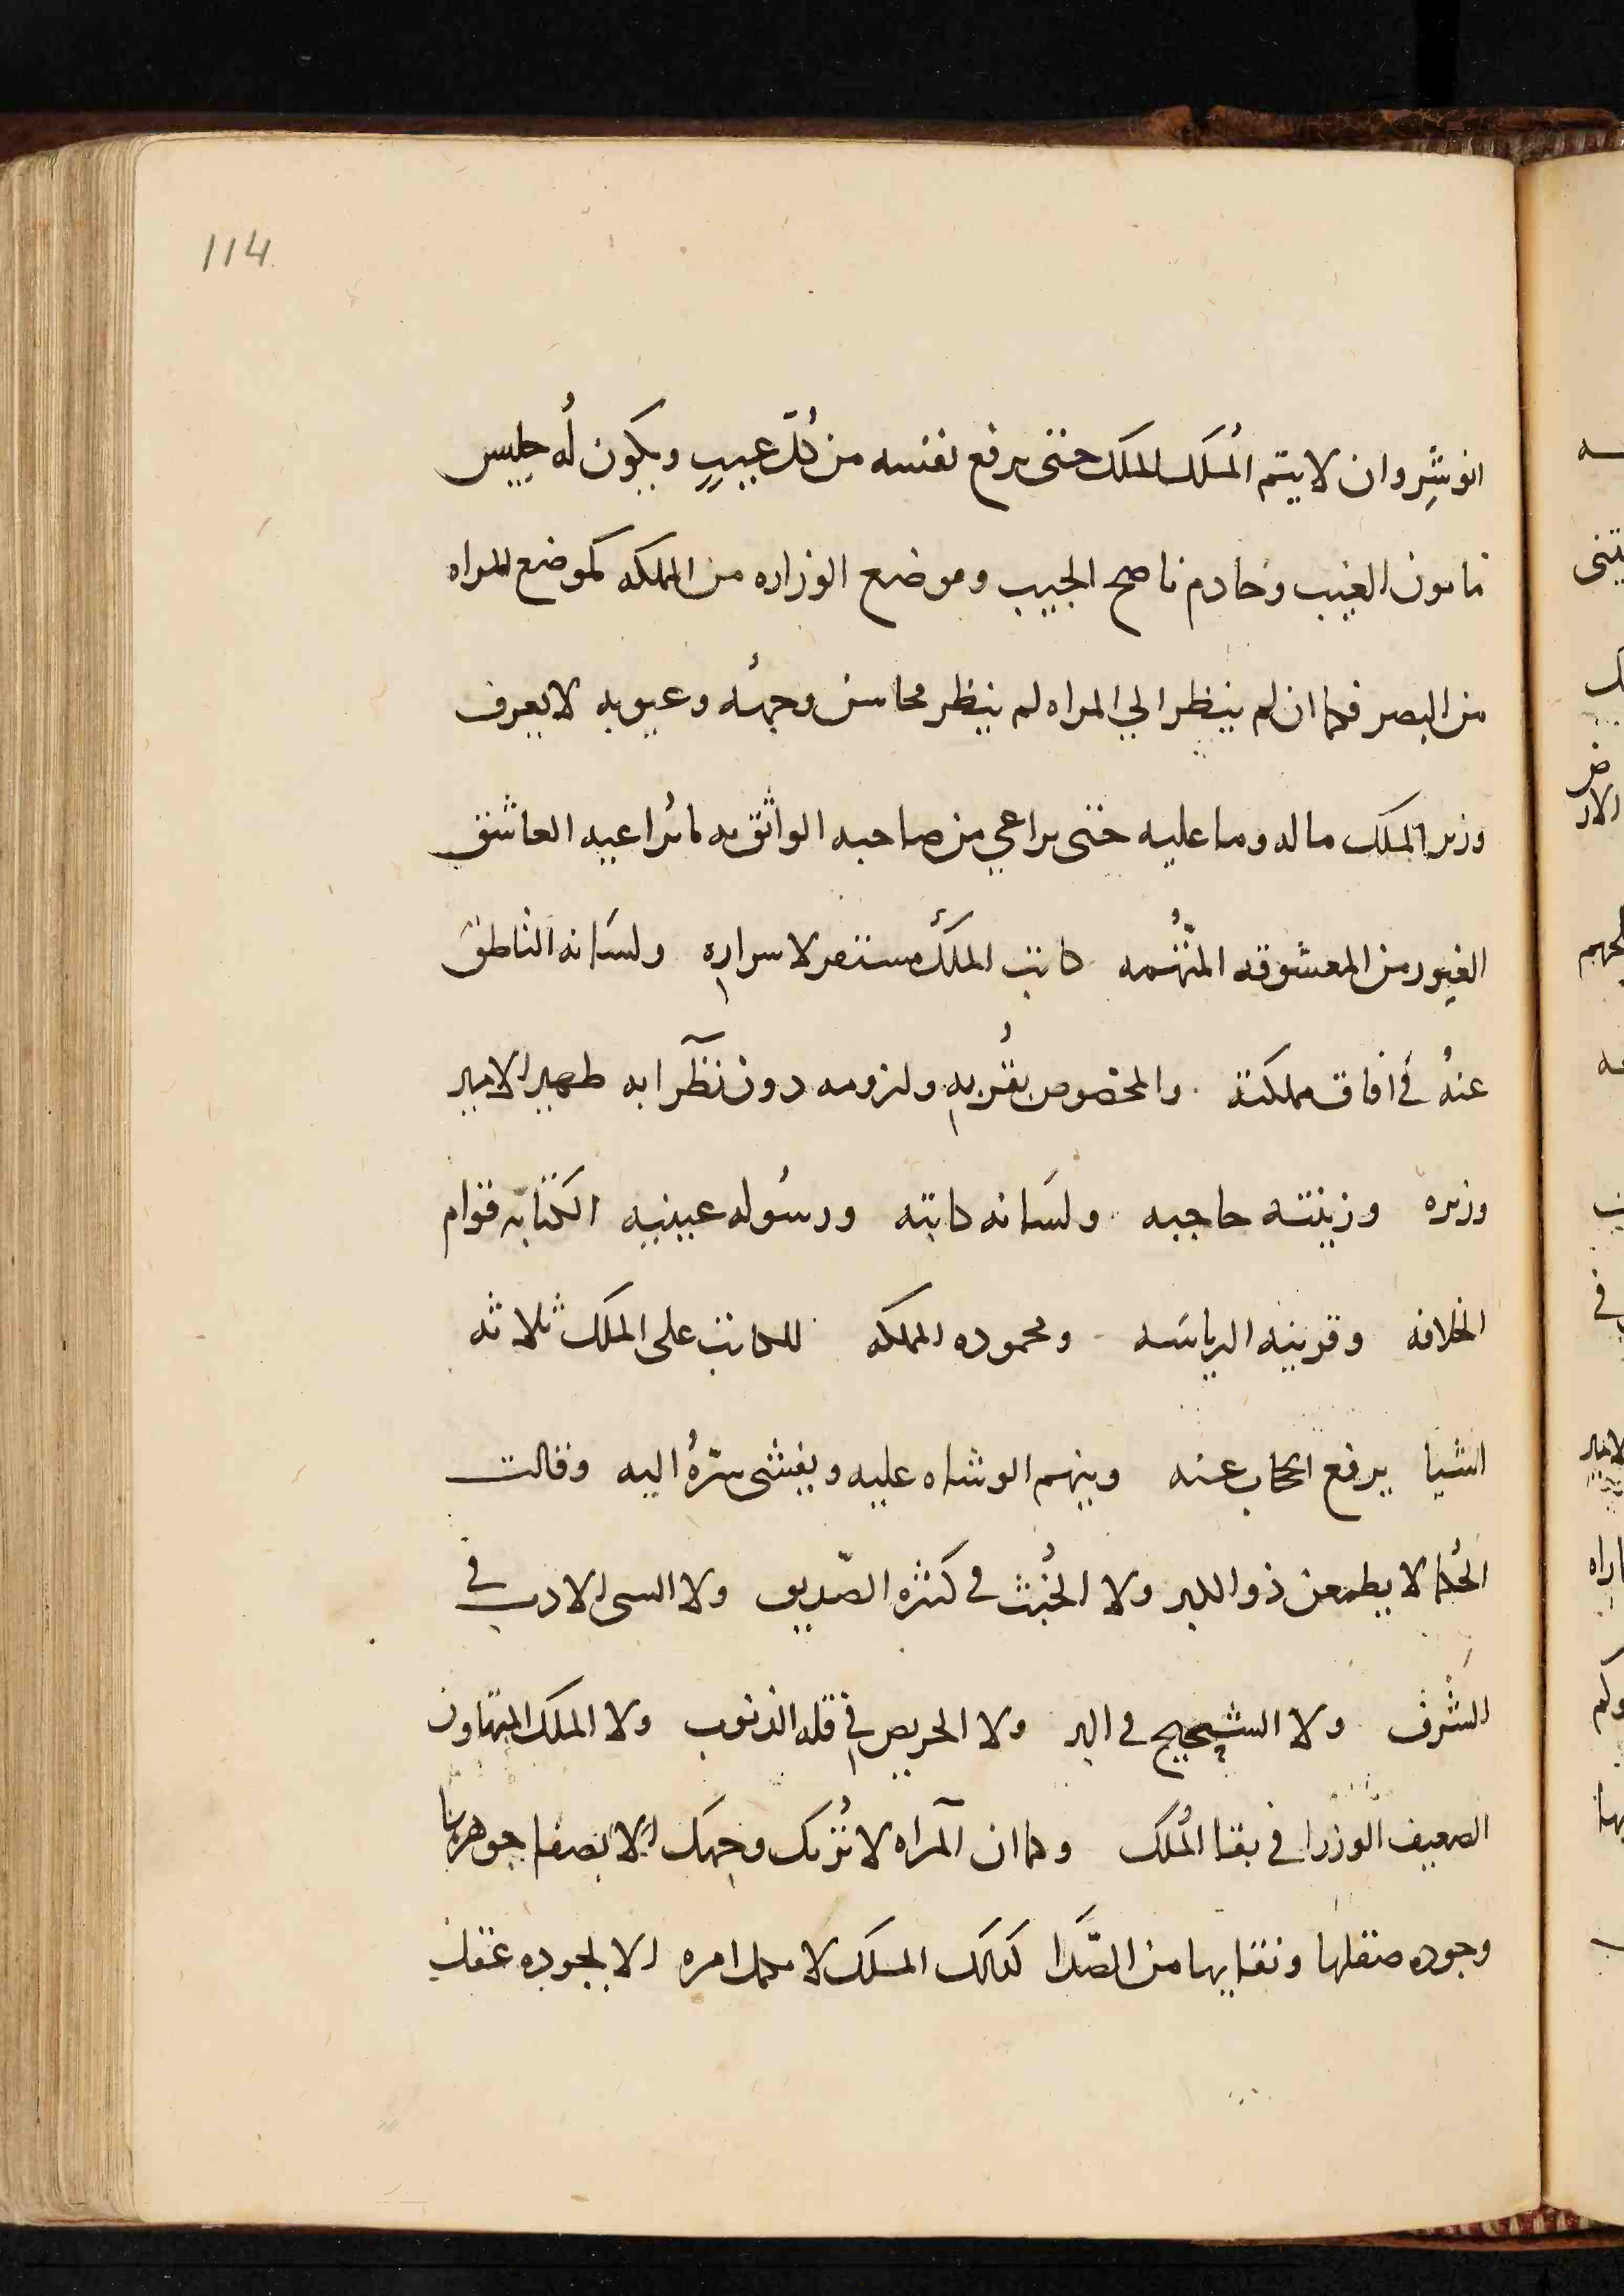 114
انوشِروان لا يتم المُلَك للملك حتى يرفع نفسه من كُلّ عيبٍ ويكون لُه جليس
مامون الغيب وخادم ناصح الجيب وموضع الوزاره من المملكه كموضع المراه
من البصر فكما ان لم ينظر الي المراه لم ينظر محاسن وجهُه وعيوبه لا يعرف
وزير الملك ماله وما عليه حتى يراعي من صاحبه الواثق به ما يُراعيه العاشق
الغيور من المعشوقه المتُّهمه كاتب الملك مستقر لاسراره ولسَانه الناطق
عنهُ في افاق مملكته والمخصوص بقُربهِ ولزومه دون نظرآيه ظهير الامير
وزيره وزينته حاجبه ولسَانه كاتبه ورسُوله عينيه الكتابه قوام
الخلافه وقرينه الرياسَه ومحموده المملكه للكاتب على الملك ثلاثه
اشيا يرفع الحجاب عنه ويتهم الوشاه عليه ويفشى سّرهُ اليه وقالت
الحُكما لا يطمعن ذو الكبر ولا الخُبث في كثره الصّديق ولا السى الادب في
الشَرف ولا الشحيح في البر ولا الحريص في قله الذنوب ولا الملك المتهاون
الضعيف الوزرا في بقا المُلك وكما ان المرآه لا تُريك وجهَك الا بصفا جوهرها
وجوده صقلها ونقايها من الصَّدا كذلك الملك لا يكمل امره الا بجوده عقل